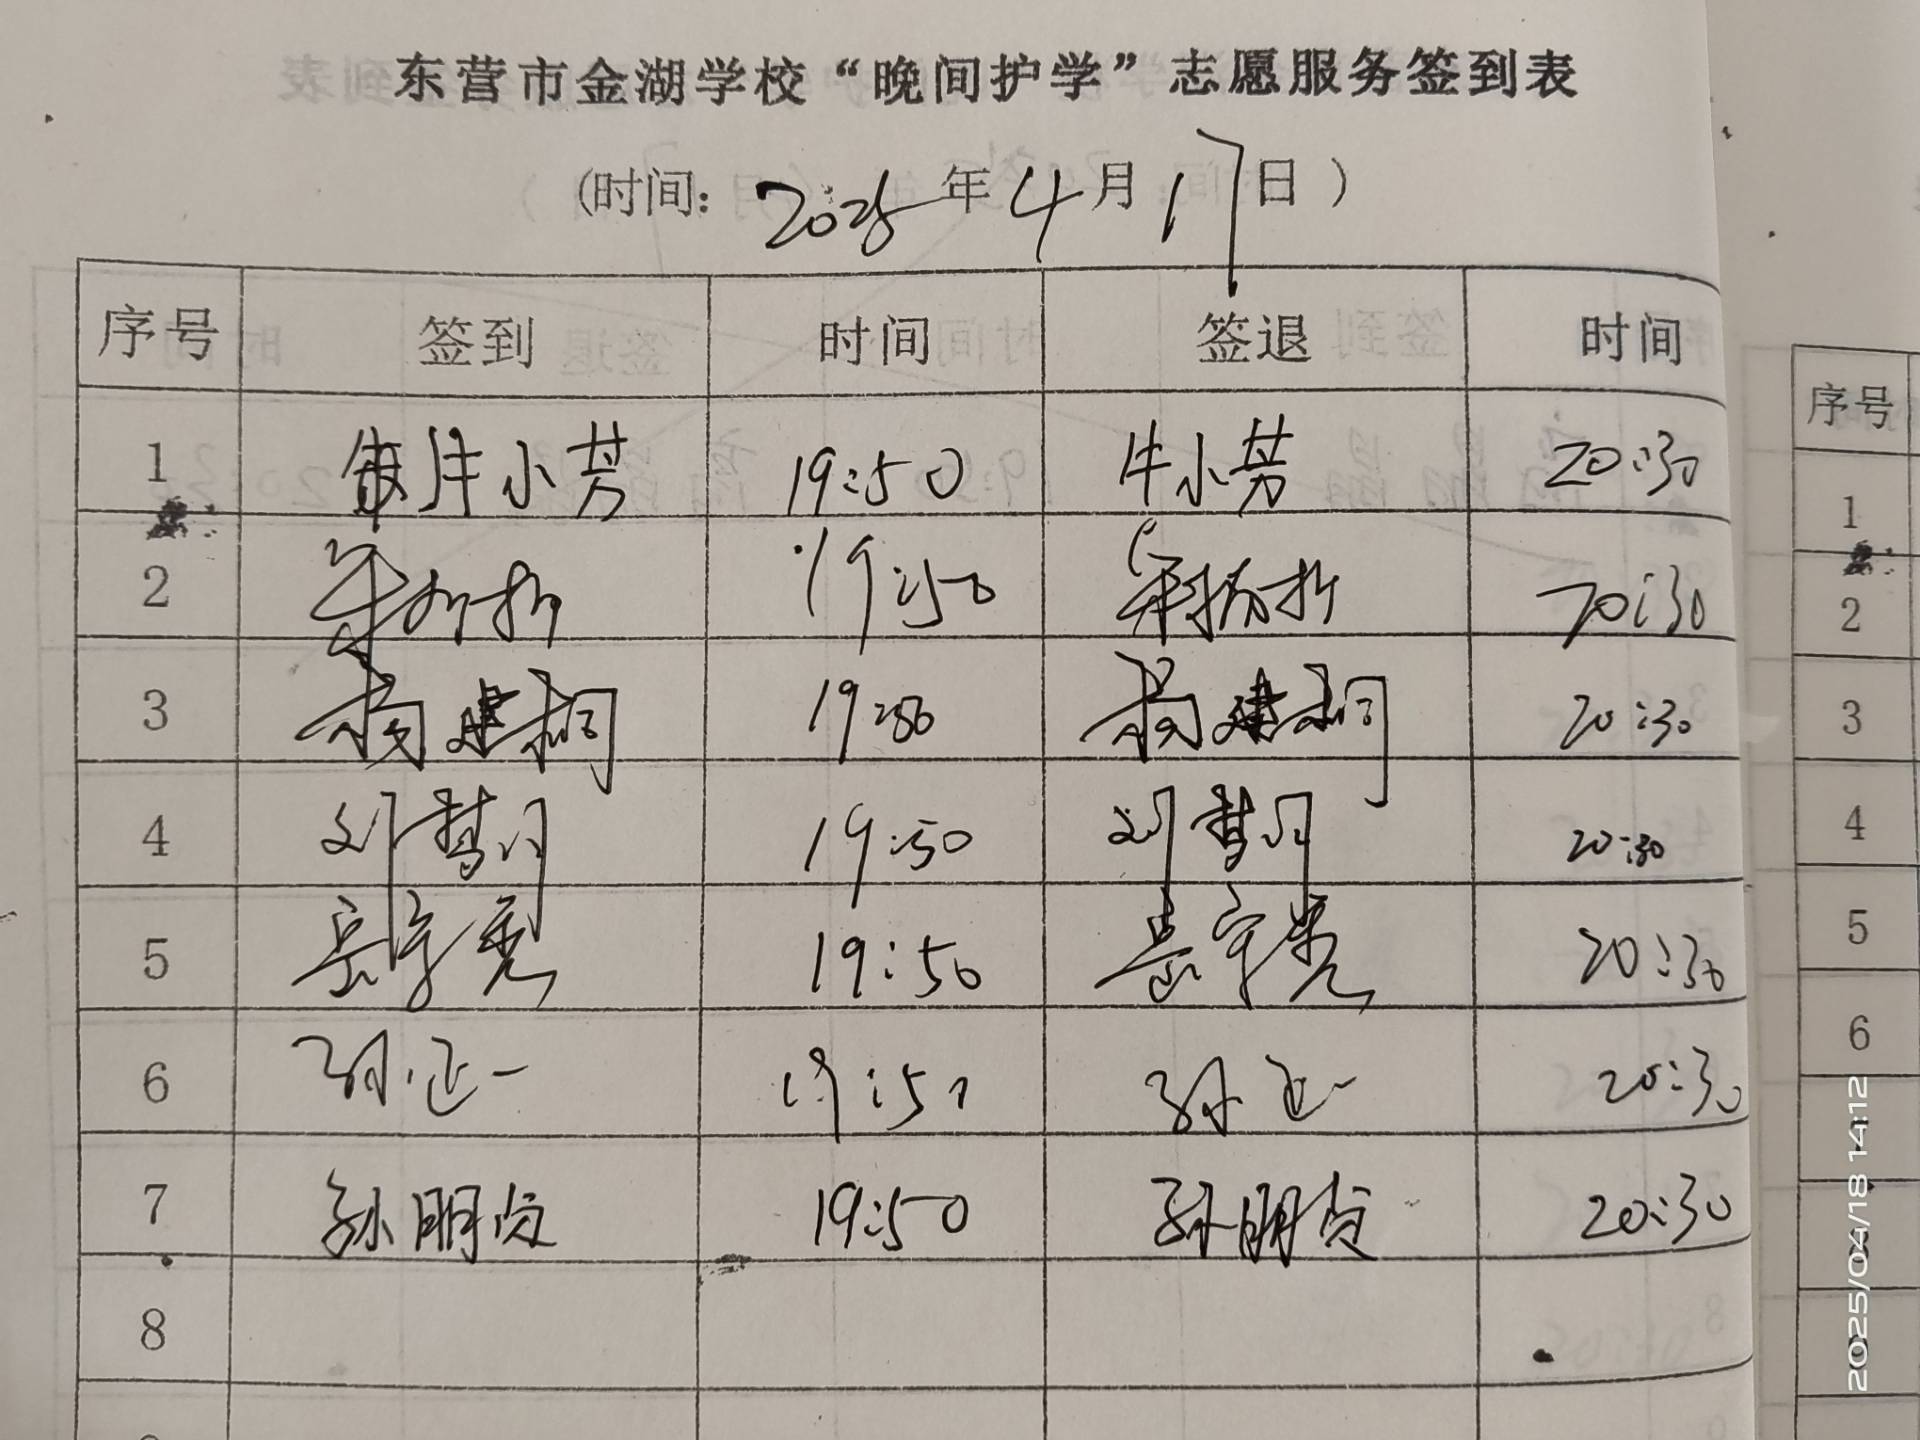 东营市金湖学校“晚间护学”志愿服务签到表
(时间: 2025年4月17日)
序号 签到 时间 签退 时间
1 牛小芳 19:50 牛小芳 20:30
2 19:50 20:30
3 杨建桐 19:50 杨建桐 20:30
4 刘梦月 19:50 刘梦月 20:30
5 岳宇亮 19:50 岳宇亮 20:30
6 孙正一 19:51 孙正一 20:30
7 孙朋贞 19:50 孙朋贞 20:30
8
序号
1
2
3
4
5
6
2025/04/18 14:12